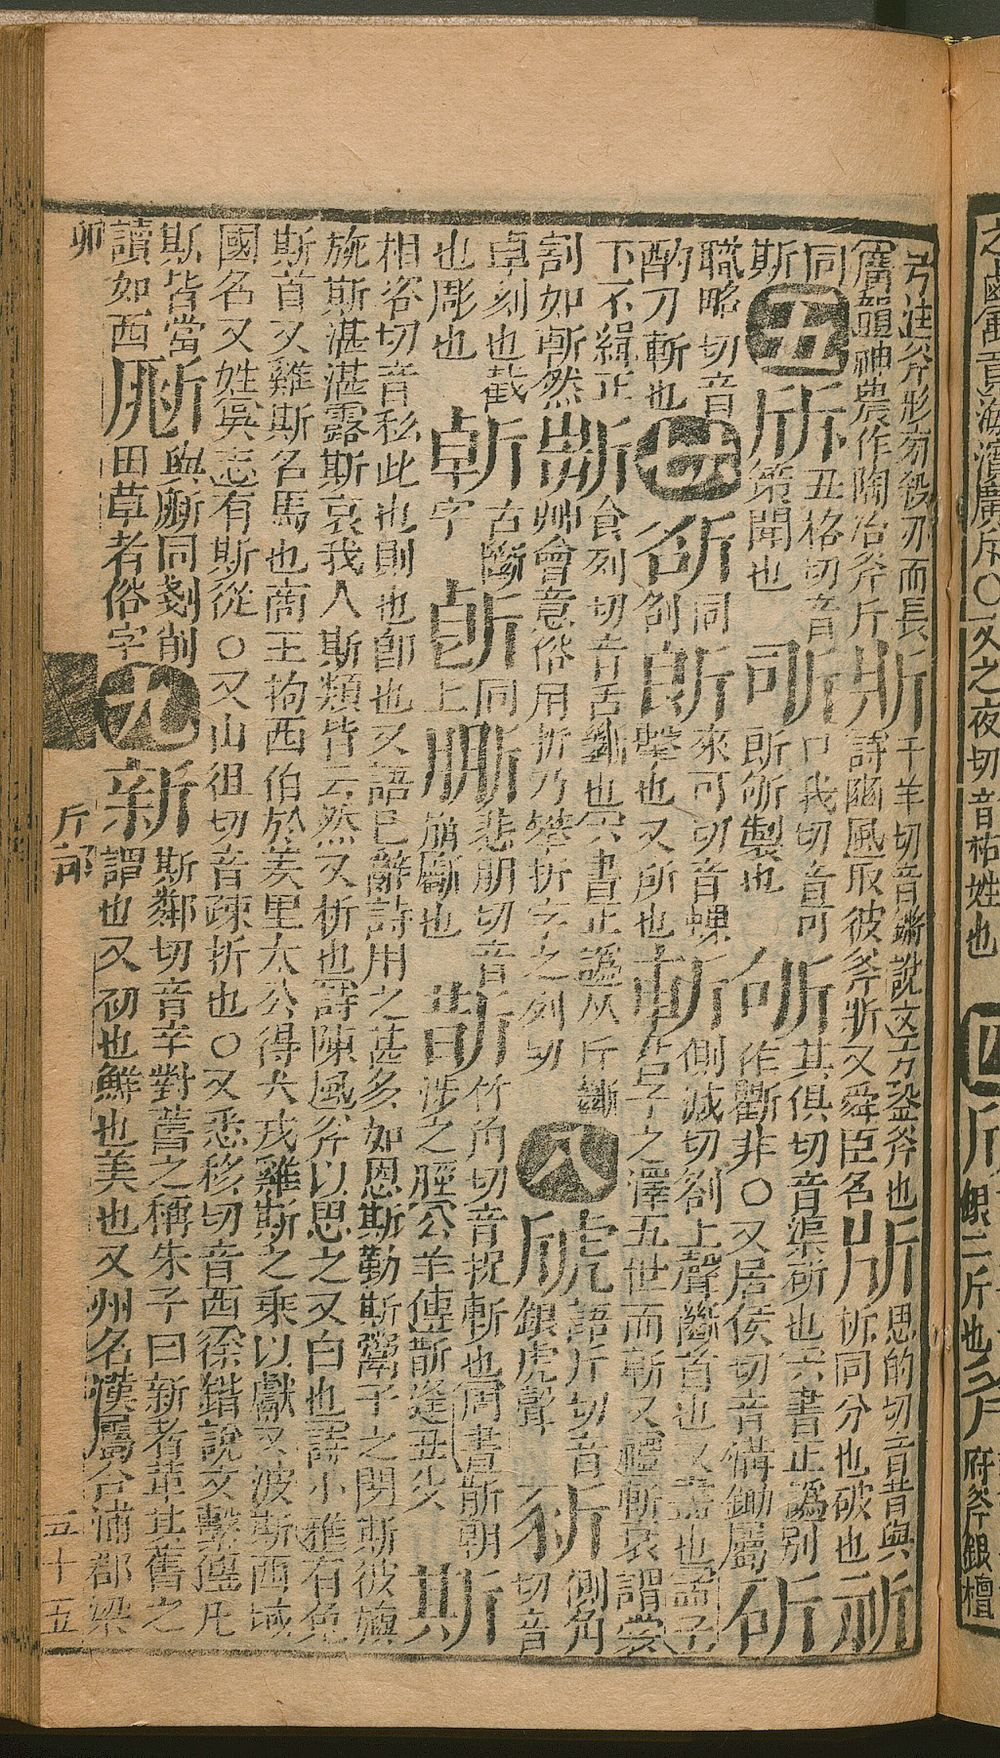 之鹵禹貢海濱廣斥○又之夜切音柘姓也 四 銀二斤也 斧 府斧銀檀
弓注斧形旁殺刃而長
廣韻神農作陶冶斧斤
斨
千羊切音鏘說文方銎斧也
詩豳風取彼斧斨又舜臣名
思的切音昔與
析同分也破也
同
斯
五
丑格切音
策開也
口我切音可
斫製也
斪
其俱切音渠斫也六書正譌別
作斸非○又居侯切音溝鋤屬
斫
職略切音
酌刀斬也
七
同
來可切音
擊也又所也
斬
側減切上聲斷首也又盡也孟子
君子之澤五世而斬又禮斬衰謂裳
下不緝正
割如斬然
食列切音舌斷也六書正譌从斤斷
艸會意俗用折乃攀折字之列切
八
語斤切音
銀虎聲
側角切音
卓刻也截
也彫也
古斷
字
同
上
悲朋切音
崩斸也
斮
竹角切音捉斬也周書斮朝
涉之脛公羊傳斮逢丑父
斯
相咨切音私此也則也卽也又語已辭詩用之甚多如恩斯勤斯鬻子之閔斯彼旟
旐斯湛湛露斯哀我人斯類皆云然又析也詩陳風斧以斯之又白也詩小雅有兔
斯首又雞斯名馬也商王拘西伯於羑里太公得犬戎雞斯之乘以獻又波斯西域
國名又姓吳志有斯從○又山徂切音疎折也○又悉移切音西徐鍇說文繫傳凡
斯皆當
讀如西
同剗削
田草者俗字
九
新
斯鄰切音辛對舊之稱朱子曰新者革其舊之
謂也又初也鮮也美也又州名漢屬合浦郡梁
卯 斤部 五十五